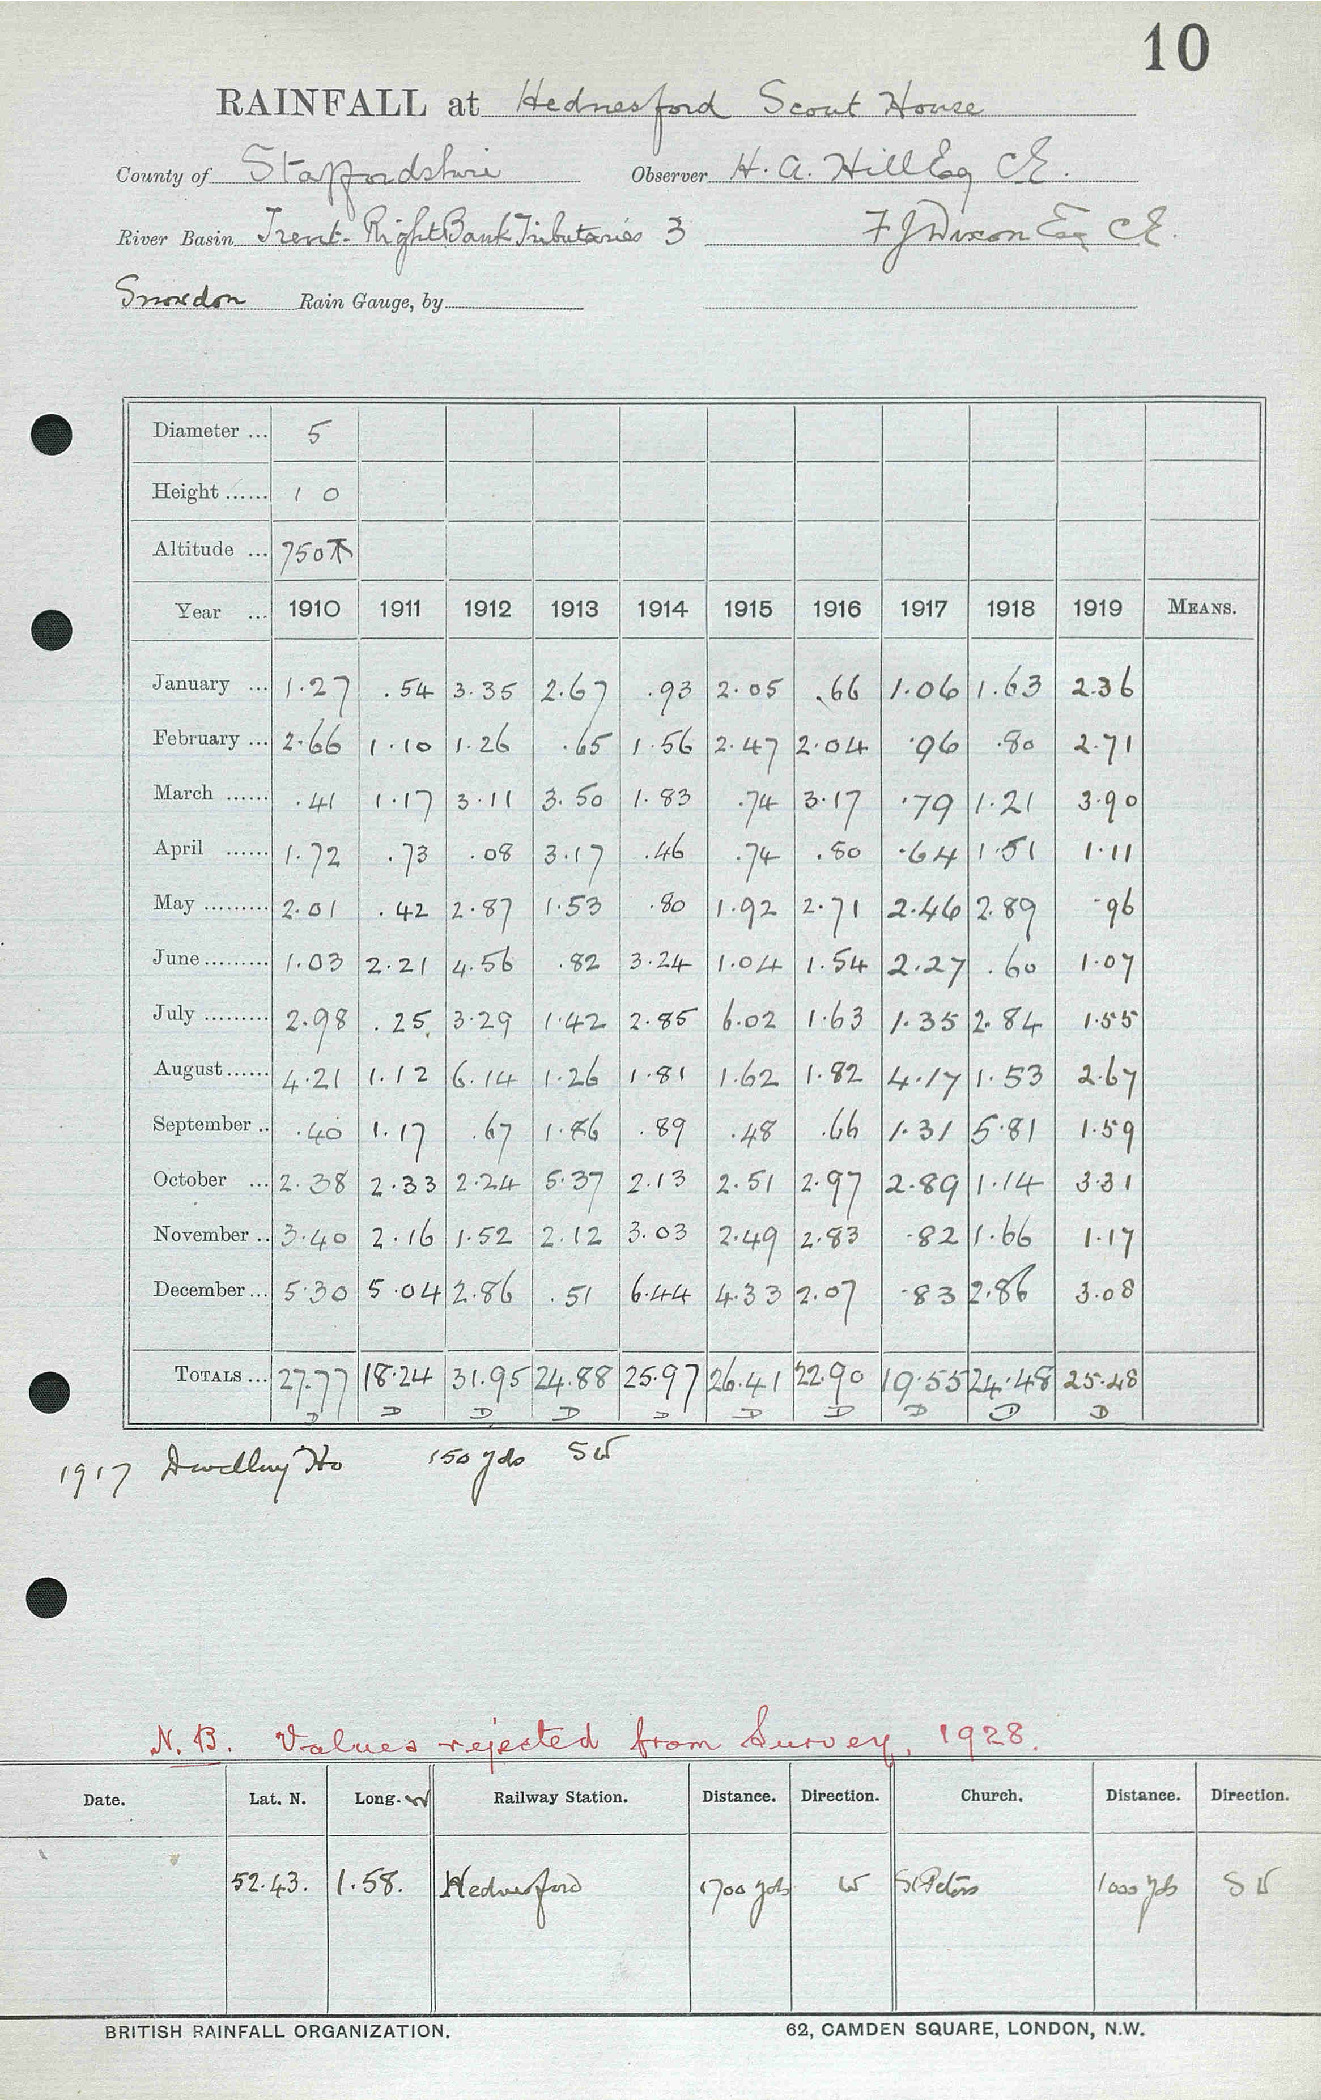 10
RAINFALL at Hednesford Scout House
County of Staffordshire Observer H. A. Hill Esq CE.
River Basin Trent-Right Bank Tributaries 3 F J Dixon Esq CE.
Snowdon Rain Gauge, by
Diameter ... 5
Height ...... 1 0
Altitude ... 750
Year ... 1910 1911 1912 1913 1914 1915 1916 1917 1918 1919 MEANS.
January ... 1.27 .54 3.35 2.67 .93 2.05 .66 1.06 1.63 2.36
February ... 2.66 1.10 1.26 .65 1.56 2.47 2.04 .96 .80 2.71
March ...... .41 1.17 3.11 3.50 1.83 .74 3.17 .79 1.21 3.90
April ...... 1.72 .73 .08 3.17 .46 .74 .80 .64 1.51 1.11
May ......... 2.01 .42 2.87 1.53 .80 1.92 2.71 2.46 2.89 .96
June ......... 1.03 2.21 4.56 .82 3.24 1.04 1.54 2.27 .60 1.07
July ......... 2.98 .25 3.29 1.42 2.85 6.02 1.63 1.35 2.84 1.55
August...... 4.21 1.12 6.14 1.26 1.81 1.62 1.82 4.17 1.53 2.67
September .. .40 1.17 .67 1.86 .89 .48 .66 1.31 5.81 1.59
October ... 2.38 2.33 2.24 5.37 2.13 2.51 2.97 2.89 1.14 3.31
November .. 3.40 2.16 1.52 2.12 3.03 2.49 2.83 .82 1.66 1.17
December ... 5.30 5.04 2.86 .51 6.44 4.33 2.07 .83 2.86 3.08
TOTALS ... 27.77 18.24 31.95 24.88 25.97 26.41 22.90 19.55 24.48 25.48
D D D D D D D D D D
1917 Dwelling Ho 150 yds SW
N.B. Values rejected from Survey, 1928.
Date. Lat. N. Long. W Railway Station. Distance. Direction. Church. Distance. Direction.
52.43. 1.58. Hednesford 1700 yds W St Peters 1000 yds SW
BRITISH RAINFALL ORGANIZATION. 62, CAMDEN SQUARE, LONDON, N.W.